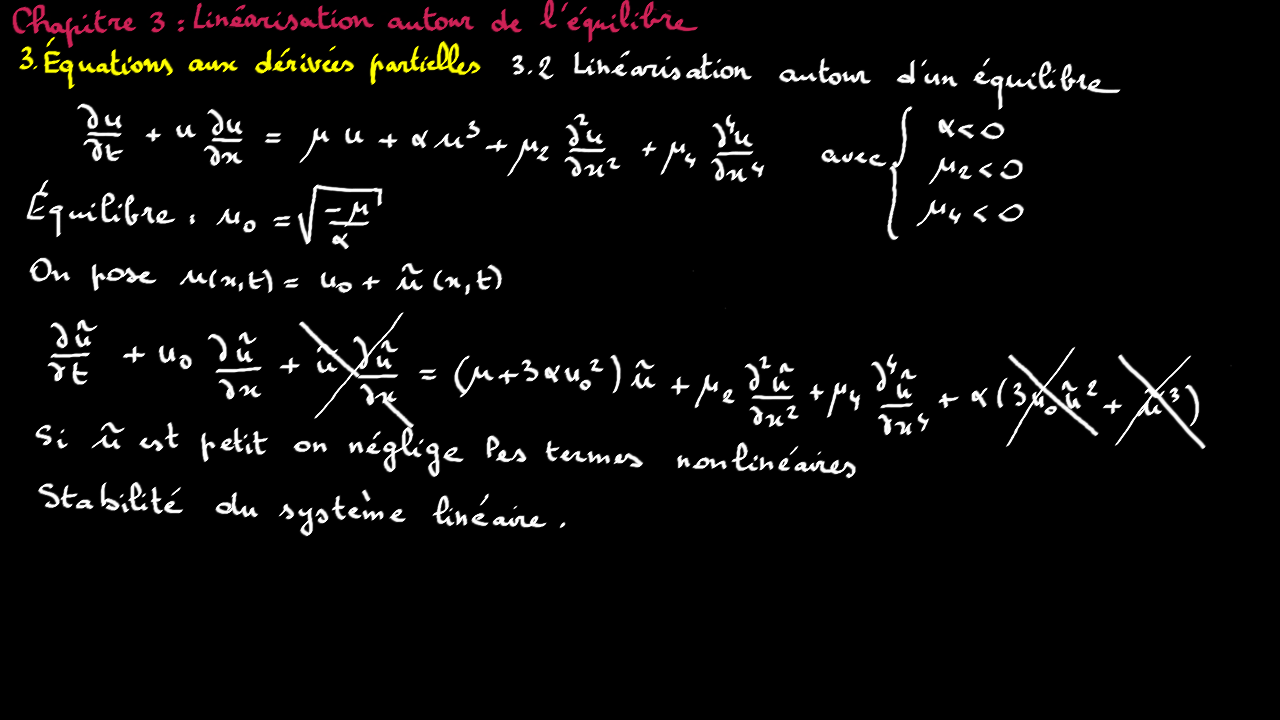 Chapitre 3 : Linéarisation autour de l'équilibre
3. Équations aux dérivées partielles 3.2 Linéarisation autour d'un équilibre
∂u/∂t + u ∂u/∂x = μ u + α u³ + μ₂ ∂²u/∂x² + μ₄ ∂⁴u/∂x⁴ avec { α < 0
μ₂ < 0
μ₄ < 0
Équilibre : u₀ = √(-μ/α)
On pose u(x,t) = u₀ + ũ(x,t)
∂ũ/∂t + u₀ ∂ũ/∂x + ũ ∂ũ/∂x = (μ + 3αu₀²) ũ + μ₂ ∂²ũ/∂x² + μ₄ ∂⁴ũ/∂x⁴ + α(3u₀ũ² + ũ³)
Si ũ est petit on néglige les termes nonlinéaires
Stabilité du système linéaire.